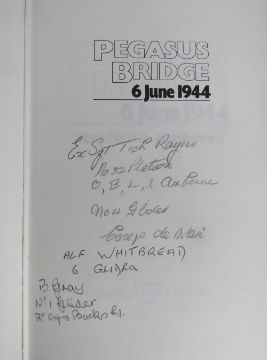 PEGASUS
BRIDGE
6 June 1944
Ex Sgt Tich Rayner
O, B, L, I, Airborne
No 4 Glider
ALF WHITBREAD
6 GLIDER
B Gray
No 1 Glider
2nd Ox & Bucks L.I.